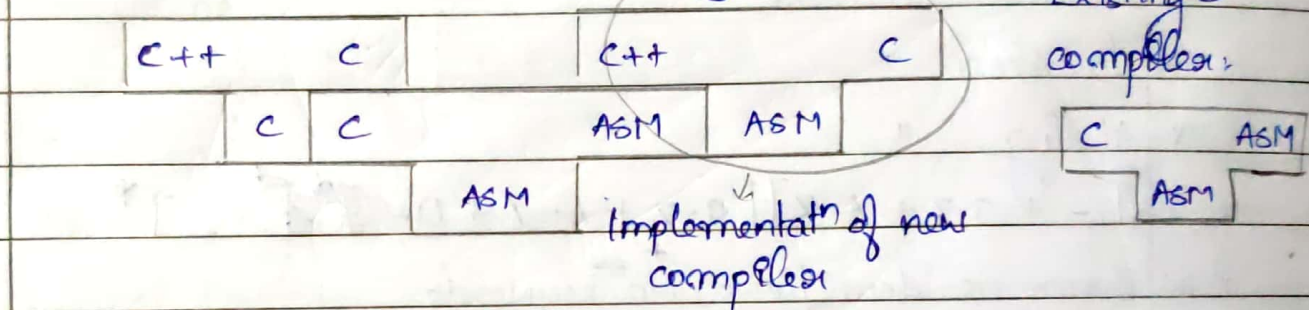 C++ C C++ C
compiler:
C C ASM ASM
C ASM
ASM
ASM
Implementatⁿ of new
compiler